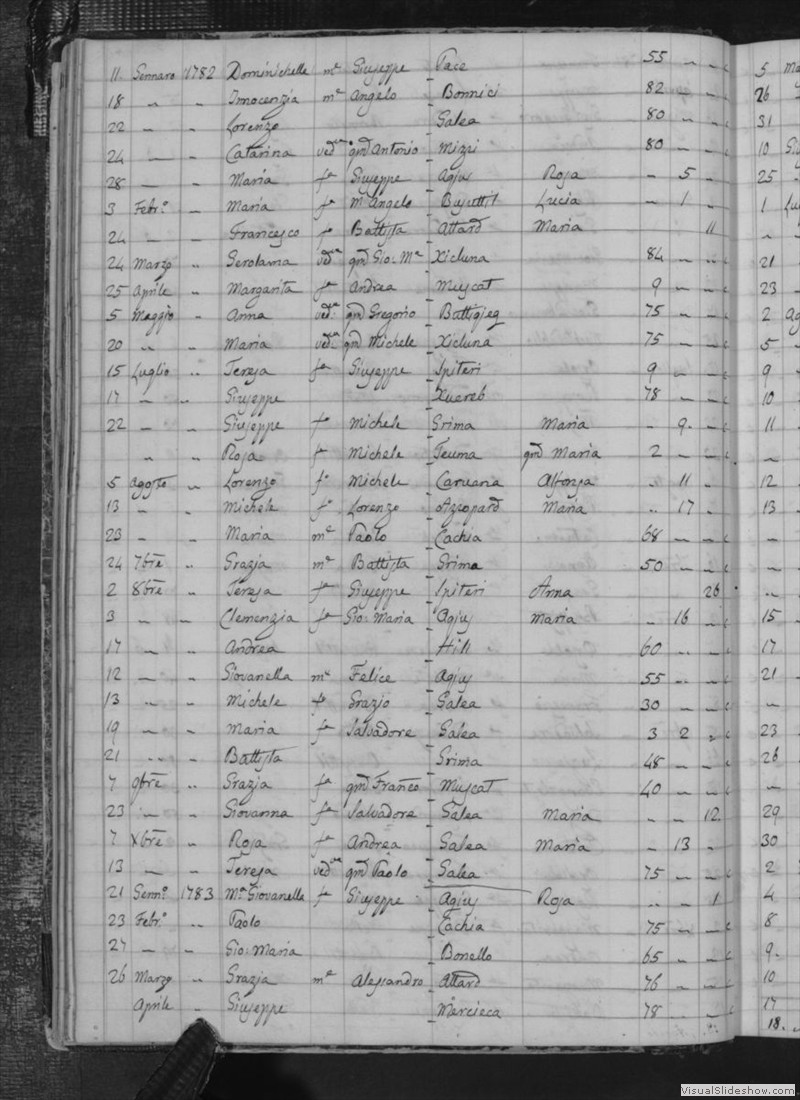 11 Gennaro 1782 Dominichella mᵉ Giuseppe Pace 55 " "
18 " " Innocenzia mᵉ Angelo Bonnici 82 " "
22 " " Lorenzo Galea 80 " "
24 — " Catarina vedᵛᵃ qm̄ Antonio Mizzi 80 " "
28 — " Maria fᵃ Giuseppe Agius Rosa " 5 "
3 Febrº " Maria fᵃ m Angelo Busuttil Lucia " 1 "
24 — " Francesco fº Battista Attard Maria 11
24 Marzo " Gerolama vedᵛᵃ qm̄ Gio: Mᵃ Xicluna 84 " "
25 Aprile " Margarita fᵃ Andrea Muscat 9 " "
5 Maggio " Anna vedᵃ: qm̄ Gregorio Buttigieg 75 " "
20 " " Maria vedᵃ qm̄ Michele Xicluna 75 " "
15 Luglio " Teresa fᵃ Giuseppe Spiteri 9 " "
17 " " Giuseppe Xuereb 78 " "
22 — " Giuseppe fº Michele Grima Maria " 9 "
" " Rosa fᵃ Michele Teuma qm̄ Maria 2 " "
5 Agosto " Lorenzo fº Michele Caruana Alfonsa " 11 "
13 " " Michele fº Lorenzo Azzopard Maria " 17 "
23 " " Maria mᵉ Paolo Cachia 68 " "
24 7bre " Grazia mᵉ Battista Grima 50 " "
2 8bre " Teresa fᵃ Giuseppe Spiteri Anna 26
3 — " Clemenzia fᵃ Gio: Maria Agius Maria " 16 "
17 — " Andrea Hili 60 " "
12 — " Giovanella mᵉ Felice Agius 55 " "
13 " " Michele fº Grazio Galea 30 " "
19 " " Maria fᵃ Salvadore Galea 3 2 "
21 " " Battista Grima 48 " "
7 9bre " Grazia fᵃ qm̄ Franco Muscat 40 " "
23 — " Giovanna fᵃ Salvadore Galea Maria " " 12
7 Xbre " Rosa fᵃ Andrea Galea Maria " 13 "
13 — " Teresa vedᵛᵃ qm̄ Paolo Galea 75 " "
21 Gennº 1783 Mᵃ Giovanella fᵃ Giuseppe Agius Rosa " " 1
23 Febrº " Paolo Cachia 75 " "
27 — " Gio: Maria Bonello 65 " "
26 Marzo " Grazia mᵉ Alessandro Attard 76 " "
Aprile " Giuseppe Mercieca 78 " "
5
26
31
10
25
1
"
21
23
2
5
9
10
11
"
12
13
"
"
"
15
17
21
"
23
26
"
29
30
2
4
8
9
10
17
18
VisualSlideshow.com